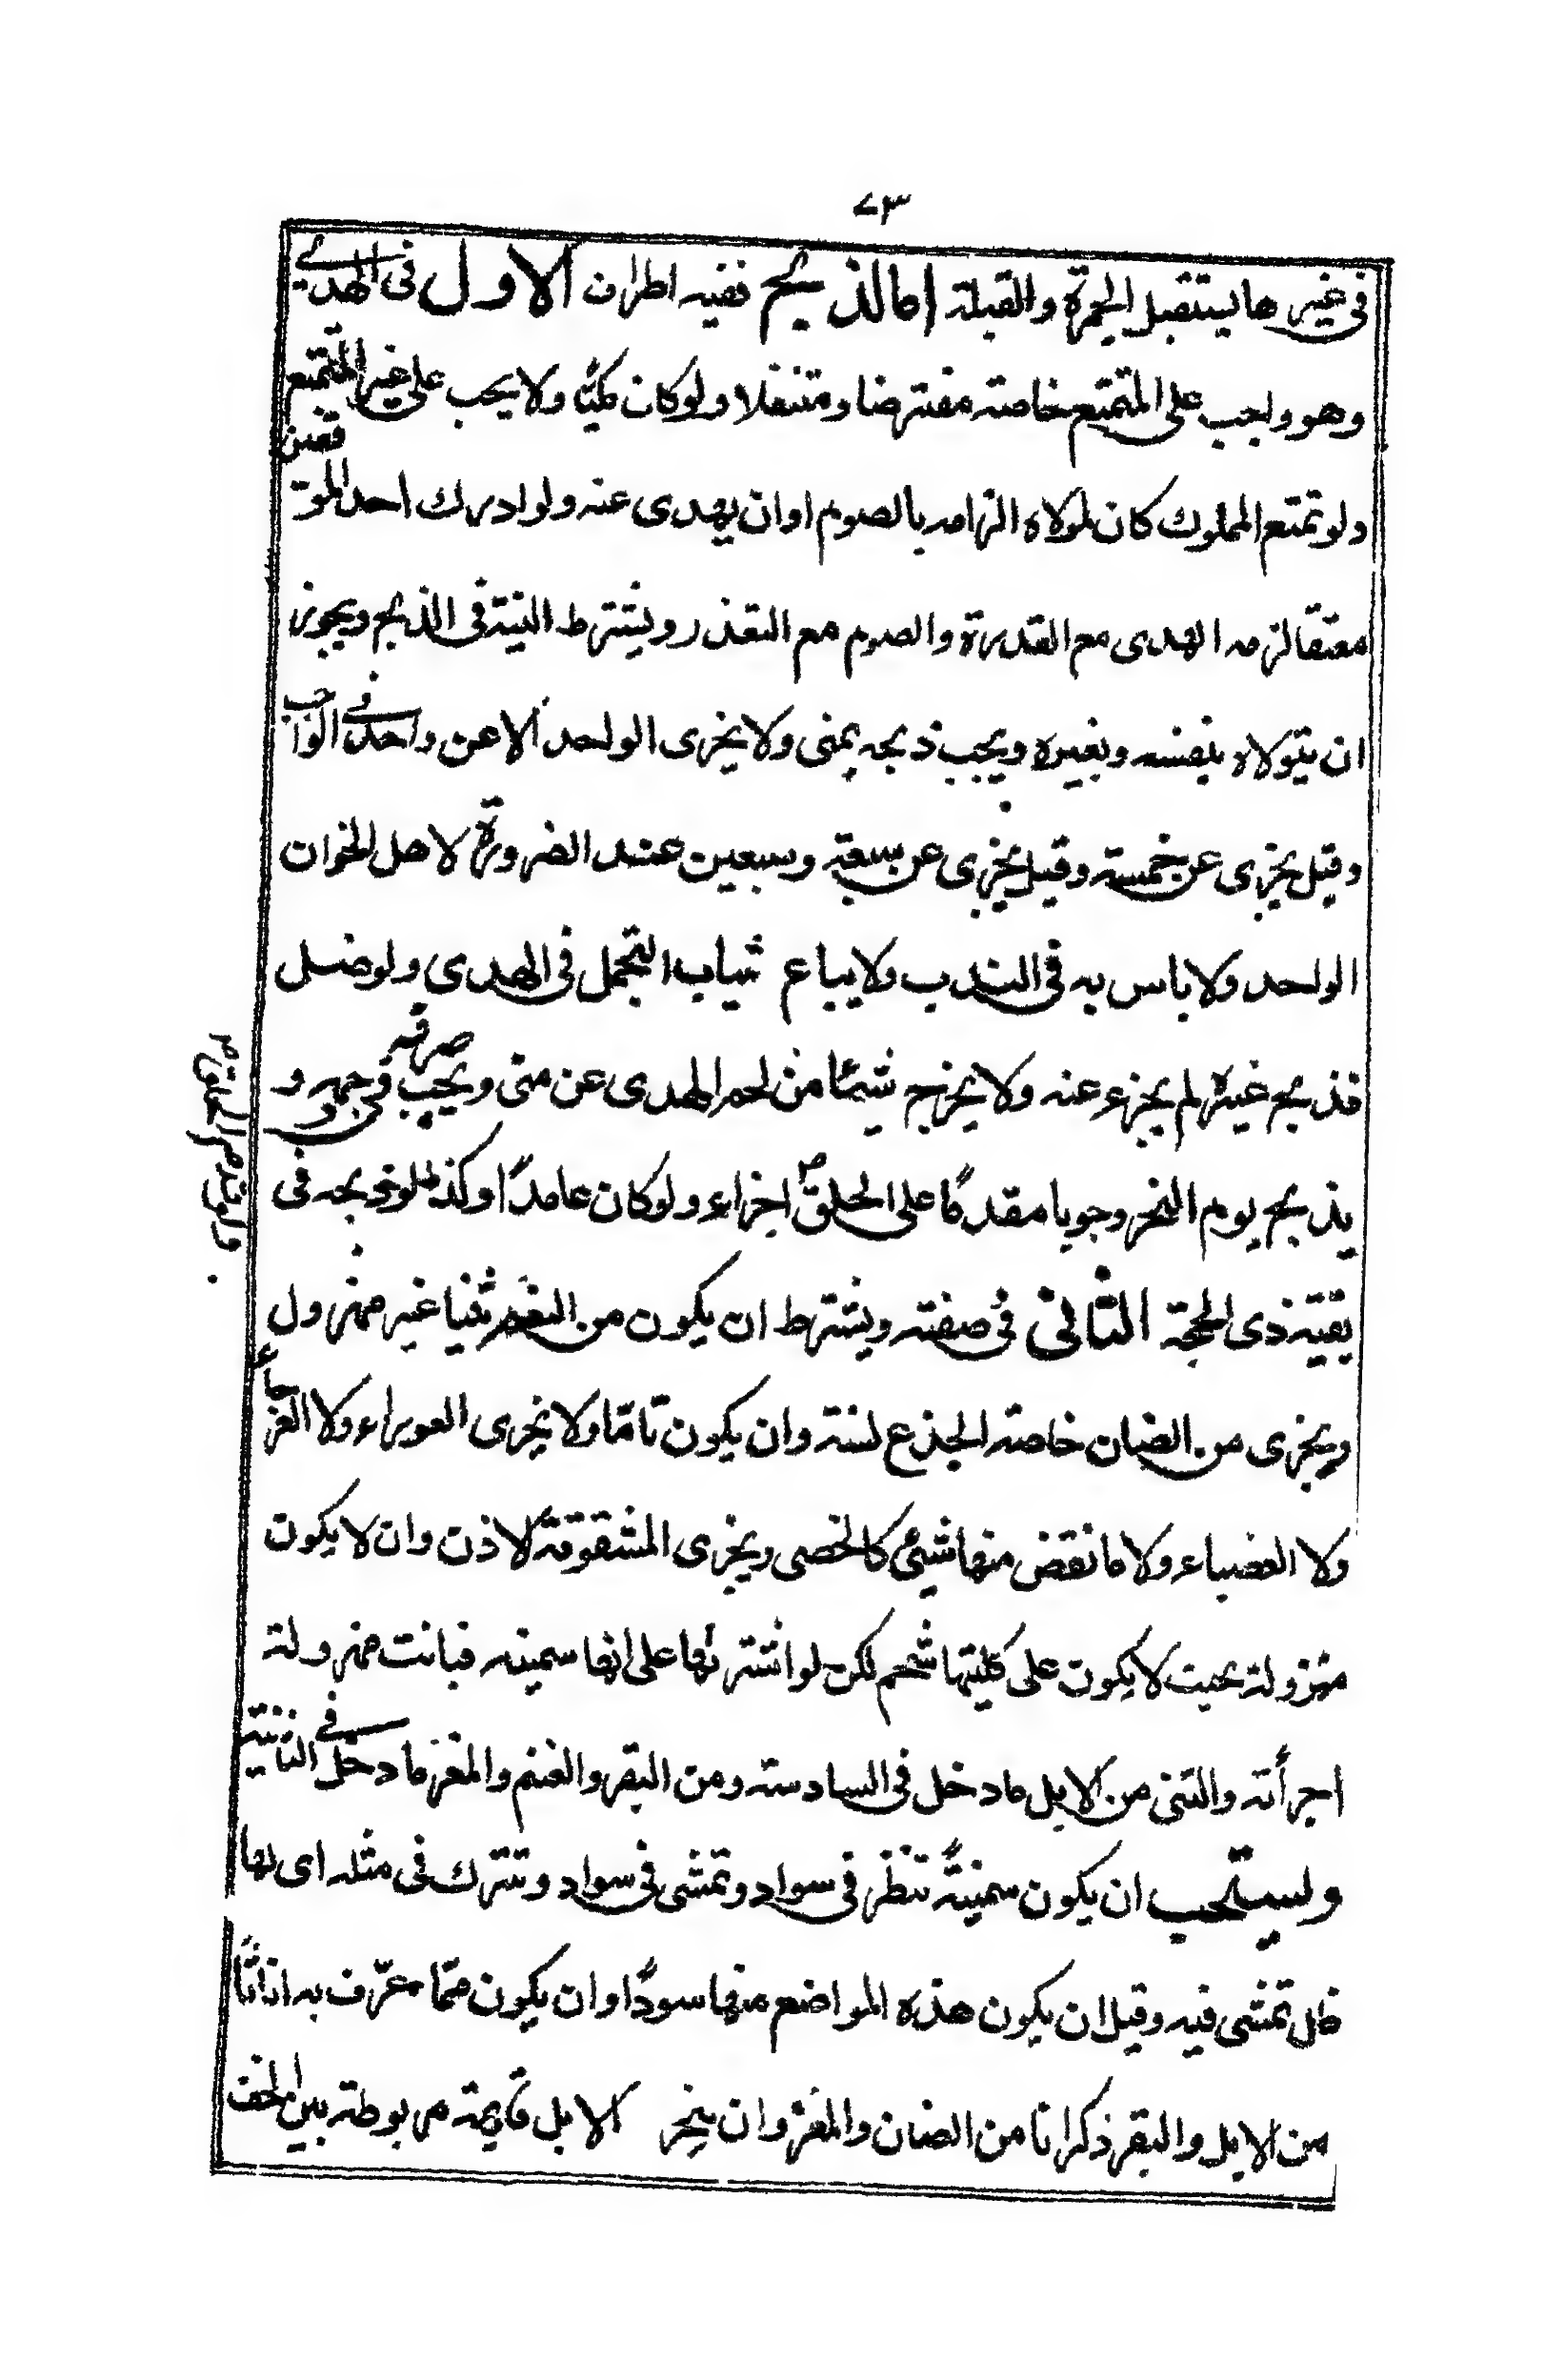 ٧٣
فى غيرها يستقبل الجمرة والقبلة اما الذبح ففيه اطراف الاول فى الهدى
وهو واجب على المتمتع خاصة مفترضا ومتنفلا ولو كان مكيًا ولا يجب على غير المتمتع
ولو تمتع المملوك كان لمولاه الزامه بالصوم او ان يهدى عنه ولو ادرك احد الموقفين
معتقا لزمه الهدى مع القدرة والصوم مع التعذر ويشترط النية فى الذبح ويجوز
ان يتولاه بنفسه وبغيره ويجب ذبحه بمنى ولا يجزى الواحد الا عن واحد فى الواجب
وقيل يجزى عن خمسة وقيل يجزى عن سبعة وسبعين عند الضرورة لاهل الخوان
الواحد ولا باس به فى الندب ولا يباع ثياب التجمل فى الهدى ولو ضل
فذبح غيره لم يجزء عنه ولا يخرج شيئا من لحم الهدى عن منى ويجب صرفه فى جهه و
يذبح يوم النحر وجوبا مقدمًا على الحلق اجزاء ولو كان عامدًا وكذا لو ذبحه فى
فلو قدم الحلق
بقية ذى الحجة الثانى فى صفته ويشترط ان يكون من النعم ثنيا غير مهزول
ويجزى من الضان خاصة الجذع لسنة وان يكون تامّا ولا يجزى العوراء ولا العرجاء
ولا العضباء ولا ما نقض منها شيئ كالخصى ويجزى المشقوقة الاذن وان لا يكون
مهزولة بحيث لا يكون على كليتها شحم لكن لو اشترئها على انها سمينه فبانت مهزولة
اجرأته والثنى من الابل ما دخل فى السادسة ومن البقر والغنم والمعز ما دخل فى الثانية
ويستحب ان يكون سمينةً تنظر فى سواد وتمشى فى سواد وتترك فى مثله اى لها
ظل تمشى فيه وقيل ان يكون هذه المواضع منها سودًا وان يكون ممّا عرّف به اناثًا
من الابل والبقر ذكرانا من الضان والمعز وان ينحر الابل قايمة مربوطة بين الخف